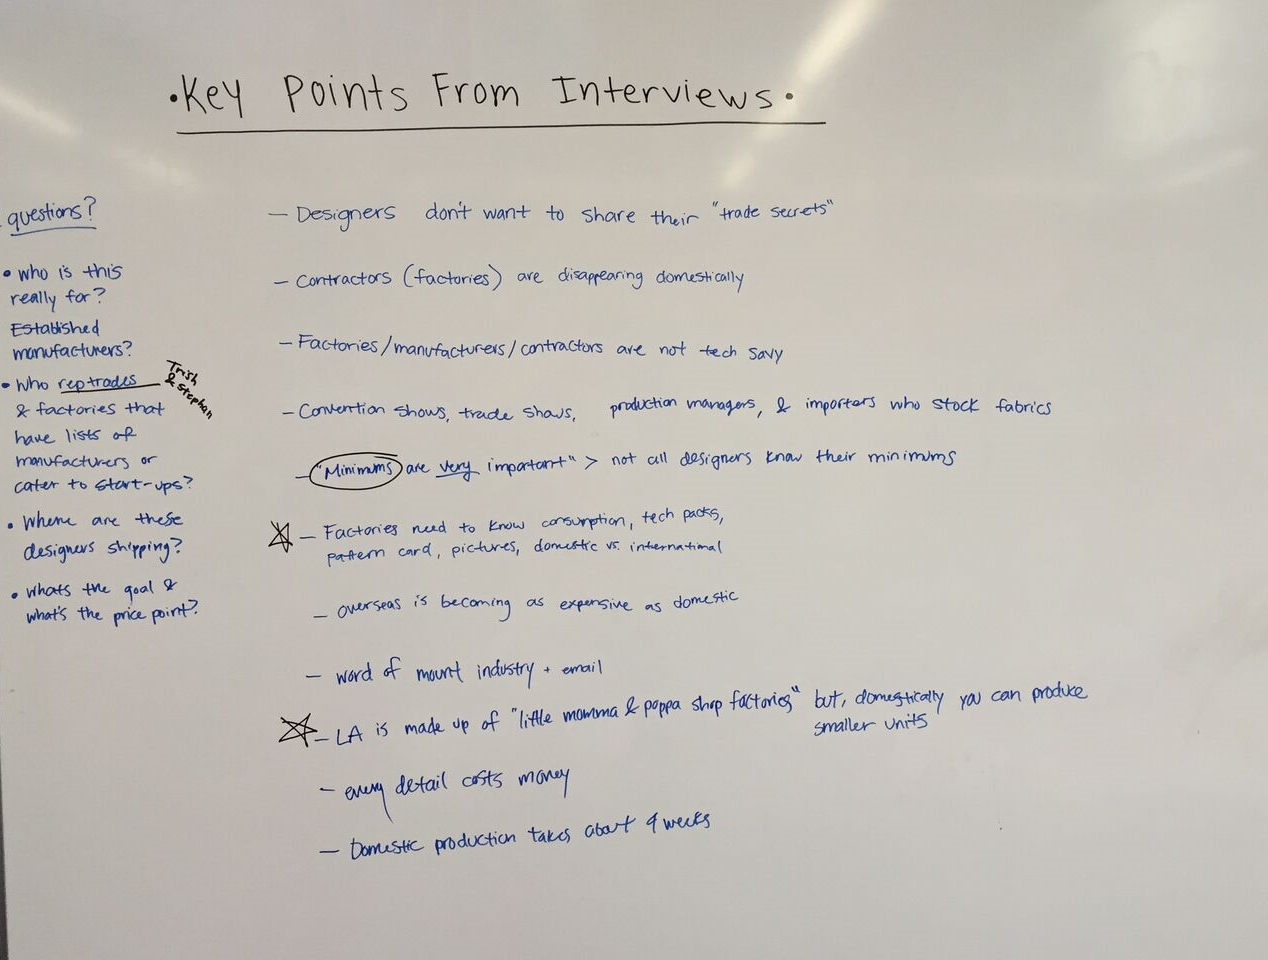 ·Key Points From Interviews·
questions?
• who is this
really for?
Established
manufacturers?
• Who reptrades
Trish
& Stephan
& factories that
have lists of
manufacturers or
cater to start-ups?
• Where are these
designers shipping?
• whats the goal &
what's the price point?
– Designers don't want to share their "trade secrets"
– Contractors (factories) are disappearing domestically
– Factories/manufacturers/contractors are not tech savy
– Convention shows, trade shows, production managers, & importers who stock fabrics
– "Minimums are very important" > not all designers know their minimums
– Factories need to know consumption, tech packs,
pattern card, pictures, domestic vs. international
– overseas is becoming as expensive as domestic
– word of mount industry + email
– LA is made up of "little momma & poppa shop factories" but, domestically you can produce
smaller units
– every detail costs money
– Domestic production takes about weeks